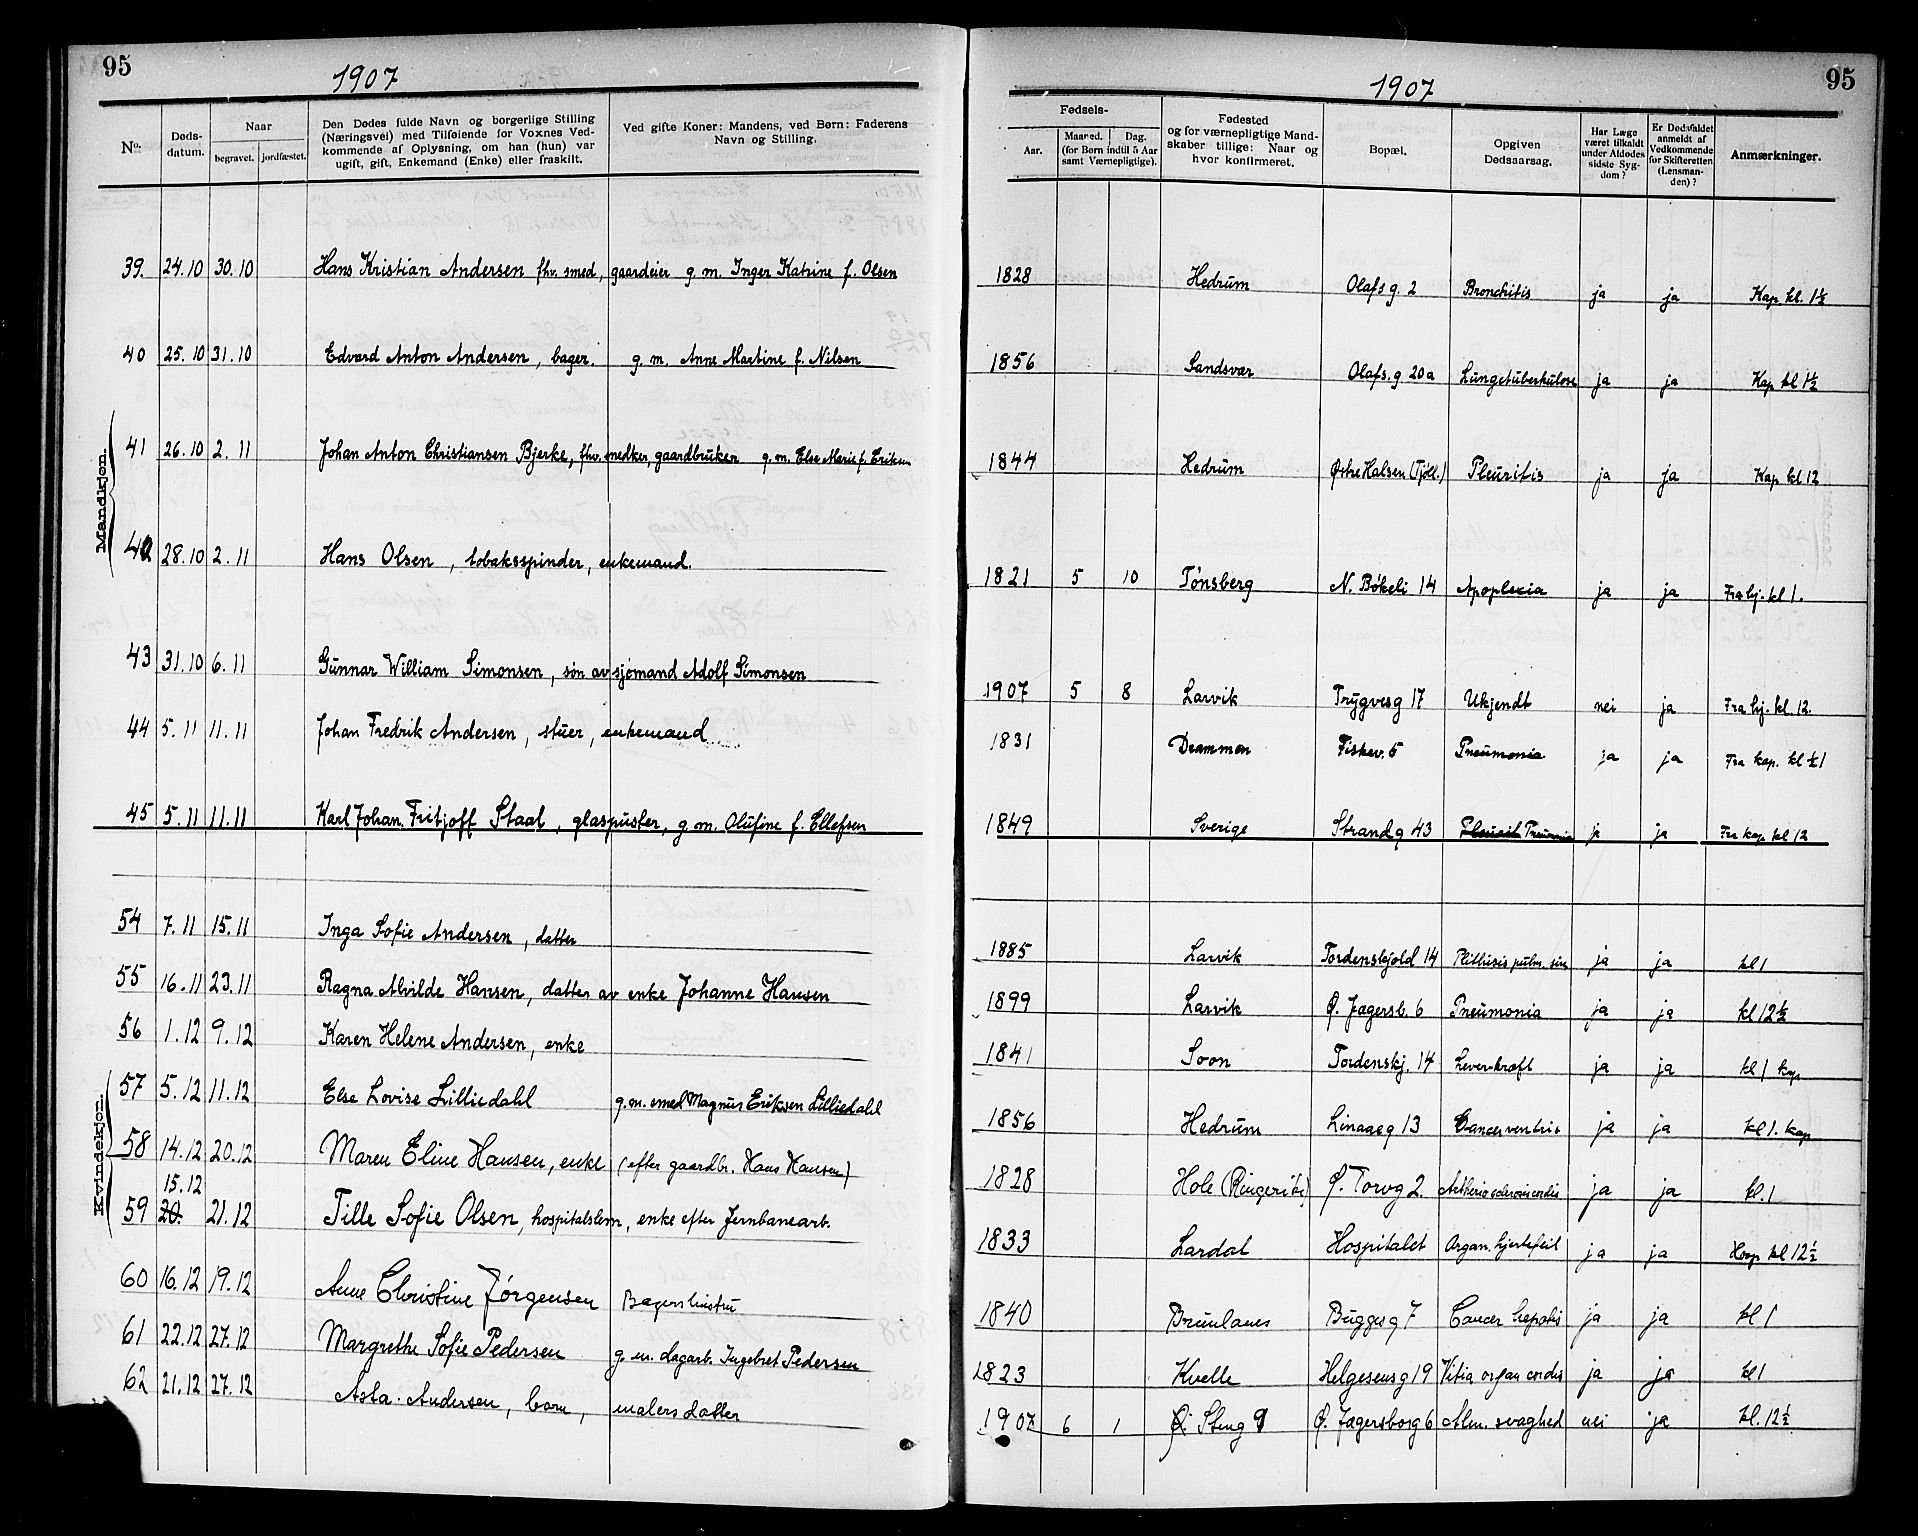 95
1907
No.
Døds-datum.
Naar
begravet.
jordfæstet.
Den Dødes fulde Navn og borgerlige Stilling
(Næringsvei) med Tilføiende for Voxnes Ved-
kommende af Oplysning, om han (hun) var
ugift, gift, Enkemand (Enke) eller fraskilt.
Ved gifte Koner: Mandens, ved Børn: Faderens
Navn og Stilling.
Mandkjøn.
39. 24.10 30.10 Hans Kristian Andersen fhv. smed, gaardeier g. m. Inger Katrine f. Olsen
40 25.10 31.10 Edvard Anton Andersen, bager. g. m. Anne Martine f. Nilsen
41 26.10 2.11 Johan Anton Christiansen Bjerke, fhv. snedker, gaardbruker g. m. Else Marie f. Eriksen
42 28.10 2.11 Hans Olsen, tobaksspinder, enkemand.
43 31.10 6.11 Gunnar William Simonsen, søn av sjømand Adolf Simonsen
44 5.11 11.11 Johan Fredrik Andersen, stuer, enkemand
45 5.11 11.11 Karl Johan Fritjoff Staal, glaspuster, g. m. Olufine f. Ellefsen
Kvindekjøn.
54 7.11 15.11 Inga Sofie Andersen, datter
55 16.11 23.11 Ragna Alvilde Hansen, datter av enke Johanne Hansen
56 1.12 9.12 Karen Helene Andersen, enke
57 5.12 11.12 Else Lovise Lilliedahl g. m. smed Magnus Eriksen Lilliedahl
58 14.12 20.12 Maren Eline Hansen, enke (efter gaardbr. Hans Hansen)
15.12
59 20. 21.12 Tille Sofie Olsen, hospitalslem, enke efter Jernbanearb.
60 16.12 19.12 Anne Christine Jörgensen Bagershustru
61 22.12 27.12 Margrethe Sofie Pedersen g. m. dagarb. Ingebret Pedersen
62 21.12 27.12 Asta Andersen, barn, malers datter
1907
95
Fødsels-
Aar.
Maaned.
Dag.
(for Børn indtil 5 Aar
samt Værnepligtige).
Fødested
og for værnepligtige Mand-
skaber tillige: Naar og
hvor konfirmeret.
Bopæl.
Opgiven
Dødsaarsag.
Har Læge
været tilkaldt
under Afdødes
sidste Syg-
dom?
Er Dødsfaldet
anmeldt af
Vedkommende
for Skifteretten
(Lensman-
den)?
Anmærkninger.
1828 Hedrum Olafs g. 2 Bronchitis ja ja Kap kl. 1½
1856 Sandsvær Olafs. g 20a Lungetuberkulose ja ja Kap kl 1½
1844 Hedrum Østre Halsen (Tjöll.) Pleuritis ja ja Kap kl 12
1821 5 10 Tönsberg N. Bökeli 14 Apoplexia ja ja Fra hj. kl 1.
1907 5 8 Larvik Trygvesg 17 Ukjendt nei ja Fra hj. kl. 12.
1831 Drammen Fiskev. 5 Pneumonia ja ja Fra kap. kl ½1
1849 Sverige Strandg 43 Pleurit Pneumonia ja ja Fra kap kl 12
1885 Larvik Tordenskjold 14 Phthisis pulm. ja ja kl 1
1899 Larvik Ø. Jagersb. 6 Pneumonia ja ja kl 12½
1841 Soon Tordenskj. 14 Leverkræft ja ja kl 1 kap
1856 Hedrum Linaaeg 13 Cancer ventric ja ja kl 1. kap
1828 Hole (Ringerike) Ø. Torvg 2. ja ja kl. 1
1833 Lardal Hospitalet Organ. hjertefeil ja ja Hosp kl 12½
1840 Brunlanes Buggesg 7 Cancer hepatis ja ja kl 1
1823 Kvelle Helgesensg 19 Vitia organ cordis ja ja kl 1
1907 6 1 Ø. Steng 9 Ø. Jagersborg 6 Alm. svaghed nei ja kl. 12½